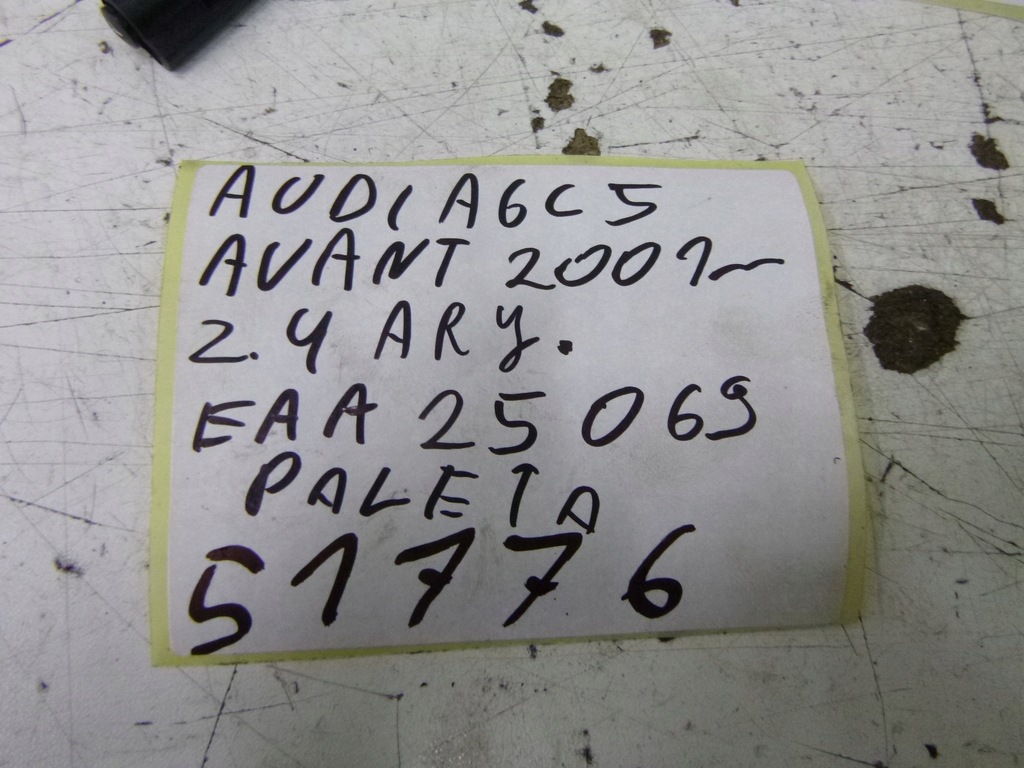 AUDI A6C5
AVANT 2001~
2.4 ARJ.
EAA 25069
PALETA
51776